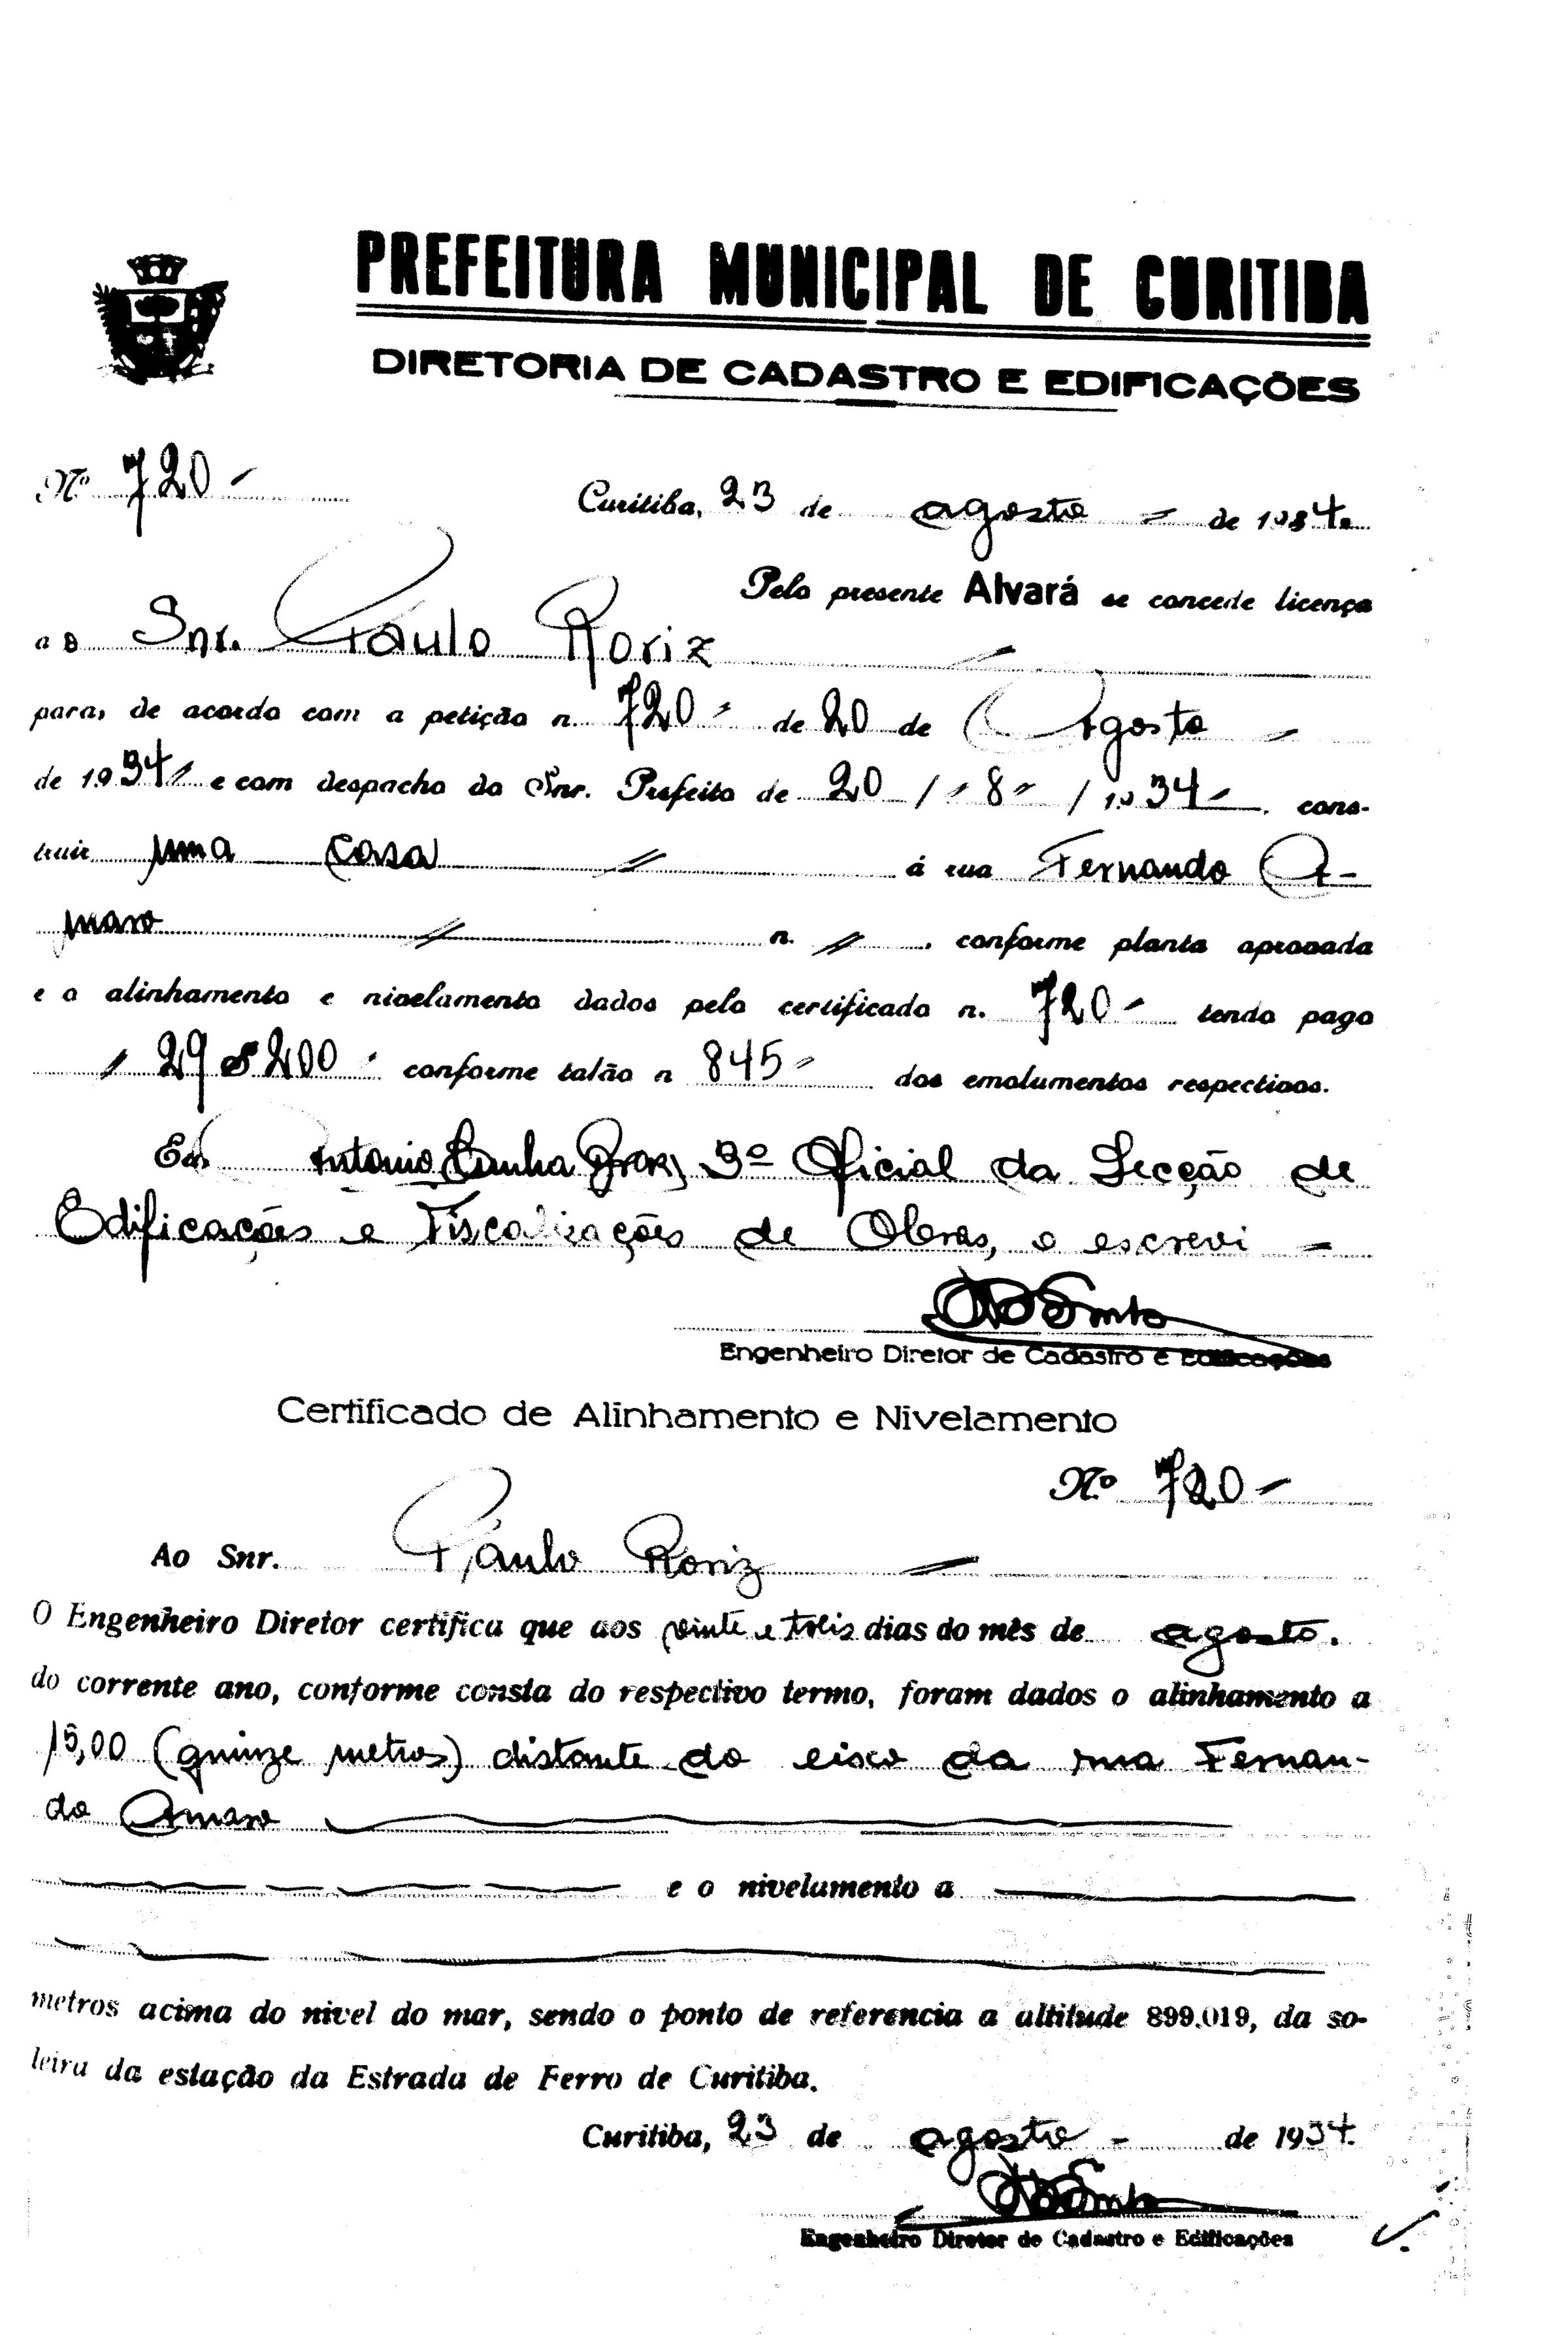 PREFEITURA MUNICIPAL DE CURITIBA
DIRETORIA DE CADASTRO E EDIFICAÇÕES
Nº 720 -
Curitiba, 23 de agosto = de 1934.
Pelo presente Alvará se concede licença
a o Snr. Paulo Roriz
para, de acordo com a petição n. 720 - de 20 de Agosto -
de 1934 e com despacho do Snr. Prefeito de 20 / 8 / 1934 - cons-
truir uma casa // á rua Fernando A-
maro // n. // . conforme planta aprovada
e o alinhamento e nivelamento dados pelo certificado n. 720 - tendo pago
29$200 conforme talão n 845 - dos emolumentos respectivos.
Eu Antonio Cunha 3º Oficial da Secção de
Edificações e Fiscalizações de Obras, o escrevi =
Engenheiro Diretor de Cadastro e Edificações
Certificado de Alinhamento e Nivelamento
Nº 720 -
Ao Snr. Paulo Roriz
O Engenheiro Diretor certifica que aos vinte e treis dias do mês de agosto.
do corrente ano, conforme consta do respectivo termo, foram dados o alinhamento a
15,00 (quinze metros) distante do eixo da rua Fernan-
do Amaro
e o nivelamento a
metros acima do nivel do mar, sendo o ponto de referencia a altitude 899.019, da so-
leira da estação da Estrada de Ferro de Curitiba.
Curitiba, 23 de agosto - de 1934.
Engenheiro Diretor de Cadastro e Edificações